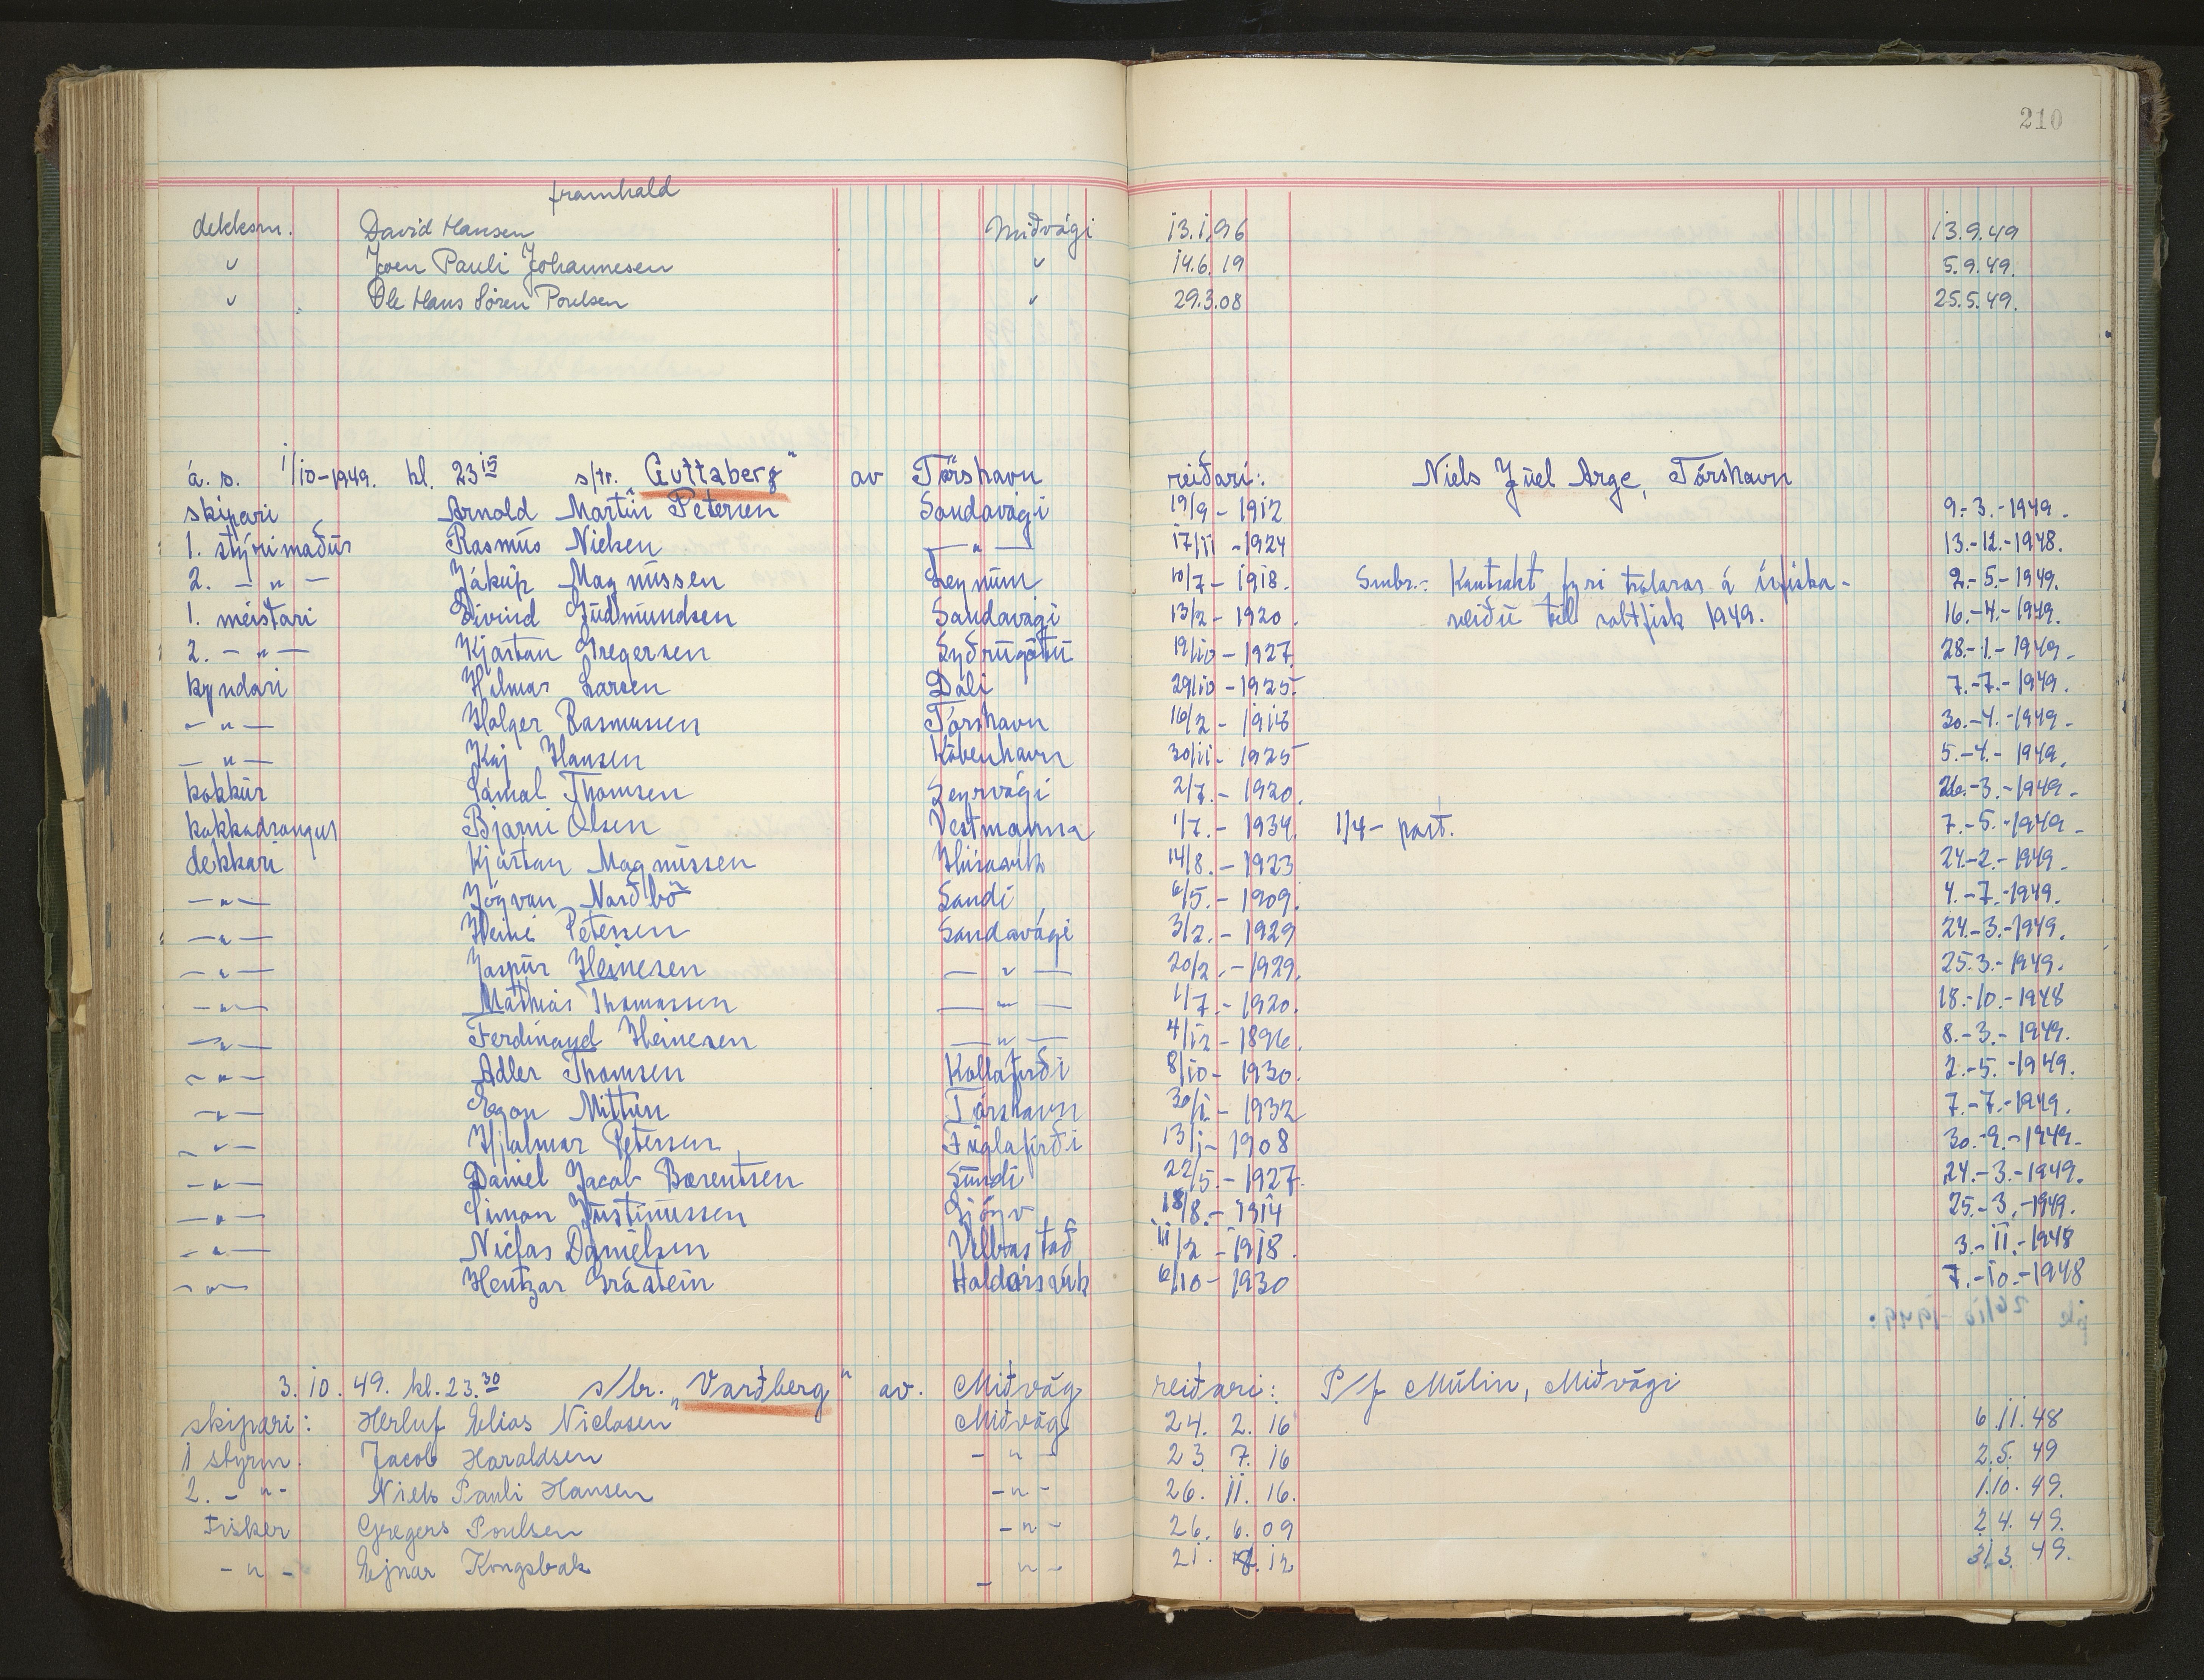 210
framhald
dekksm. David Hansen Miðvági 13.1.96 13.9.49
" Joen Pauli Johannesen " 14.6.19 5.9.49.
" Ole Hans Sören Poulsen " 29.3.08 25.5.49.
á. s. 1/10-1949. kl. 23 15 s/tr. "Guttaberg" av Tórshavn reiðari: Niels Júel Arge, Tórshavn
skipari Arnold Martin Petersen Sandavági 19/9 - 1912 9.-3.-1949.
1. stýrimaður Rasmus Nielsen — " — 17/11 - 1924 13.-12.-1948.
2. — " — Jákup Magnussen Leynum 10/7 - 1918. Smbr.: Kontrakt fyri trolarar á ísfiska- 2.-5.-1949.
1. meistari Eivind Gudmundsen Sandavági 13/2 - 1920. veiðu til saltfisk 1949. 16.-4.-1949.
2. — " — Kjartan Gregersen Syðrugøtu 19/10 - 1927. 28.-1.-1949.
kyndari Hilmar Larsen Dali 29/10 - 1925. 7.-7.-1949.
— " — Holger Rasmussen Tórshavn 16/2 - 1918 30.-4.-1949.
— " — Kaj Hansen Köbenhavn 30/11 - 1925 5.-4.-1949.
kokkur Sámal Thomsen Seyrvági 2/7. - 1920. 26.-3.-1949.
kokkadrongur Bjarni Olsen Vestmanna 1/7. - 1934. 1/4 - part. 7.-5.-1949.
dekkari Kjartan Magnussen Húsavík 14/8. - 1923 24.-2.-1949.
— " — Jógvan Norðbö Sandi 6/5. - 1909. 4.-7.-1949.
— " — Heini Petersen Sandavági 3/2. - 1929 24.-3.-1949.
— " — Jaspur Heinesen — " — 20/2. - 1929. 25.3.-1949.
— " — Mathias Thomassen — " — 1/7. - 1920. 18.-10.-1948
— " — Ferdinand Heinesen — " — 4/12 - 1896. 8.-3.-1949.
— " — Adler Thomsen Kollafirði 8/10 - 1930. 2.-5.-1949.
— " — Egon Mittun Tórshavn 30/1 - 1932 7.-7.-1949.
— " — Hjalmar Petersen Fuglafirði 13/1 - 1908 30.-9.-1949.
— " — Daniel Jacob Bærentsen Sundi 22/5. - 1927. 24.-3.-1949.
— " — Simon Justinussen Gjógv 18/8. - 1914 25.-3.-1949.
— " — Niclas Danielsen Velbastað 11/2 - 1918. 3.-11.-1948
— " — Hentzar Grástein Haldarsvík 6/10 - 1930 7.-10.-1948
3.10.49. kl. 23.30 s/tr. "Varðberg" av. Miðvág reiðari: P/f Múlin, Miðvági
skipari: Herluf Elias Niclasen Miðvág 24. 2. 16 6.11.48
1 styrm. Jacob Haraldsen — " — 23. 7. 16 2.5.49
2. — " — Niels Pauli Hansen — " — 26. 11. 16. 1.10.49.
Fisker Gregers Poulsen — " — 26. 6. 09 2 4. 49.
— " — Ejnar Kongsbak — " — 21. 8. 12 31.3. 49.